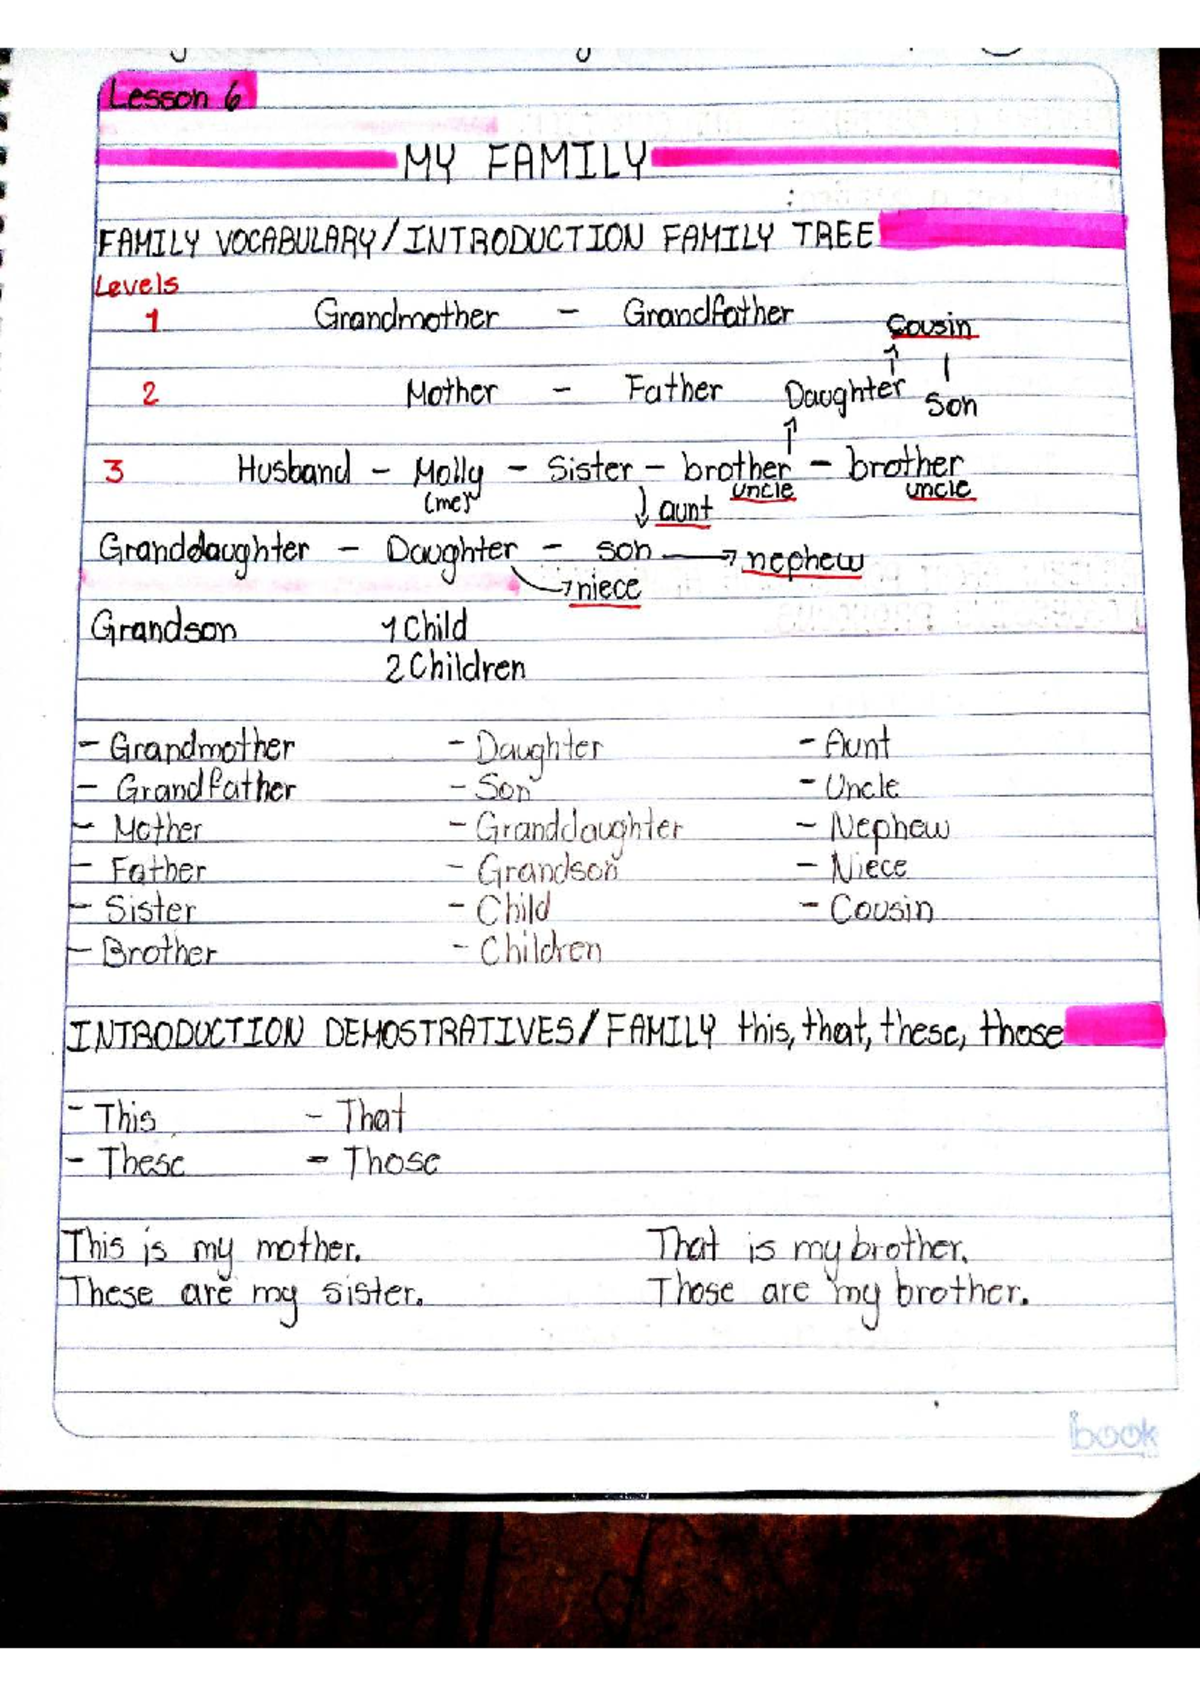 Lesson 6
MY FAMILY
FAMILY VOCABULARY/INTRODUCTION FAMILY TREE
Levels
1 Grandmother - Grandfather
Cousin
2 Mother - Father Daughter Son
3 Husband - Molly - Sister - brother - brother
(me) uncle uncle
aunt
Granddaughter - Daughter - son → nephew
niece
Grandson 1 Child
2 Children
- Grandmother - Daughter - Aunt
- Grandfather - Son - Uncle
- Mother - Granddaughter - Nephew
- Father - Grandson - Niece
- Sister - Child - Cousin
- Brother - Children
INTRODUCTION DEMOSTRATIVES/FAMILY this, that, these, those
- This - That
- These - Those
This is my mother. That is my brother.
These are my sister. Those are my brother.
ibook